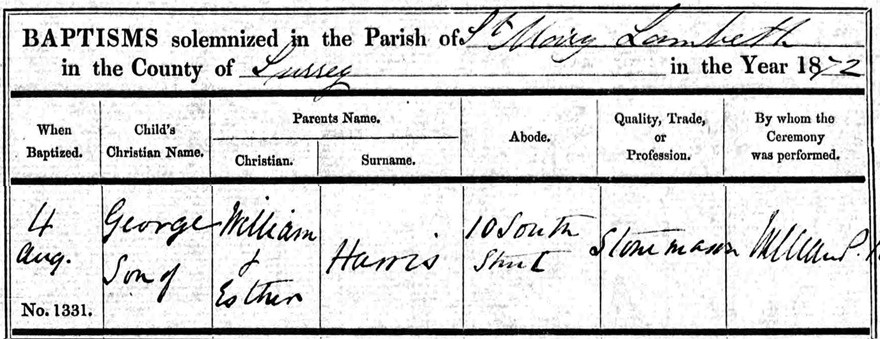 BAPTISMS solemnized in the Parish of St Mary Lambeth
in the County of Surrey in the Year 1872
When Baptized.
Child's Christian Name.
Parents Name.
Christian.
Surname.
Abode.
Quality, Trade, or Profession.
By whom the Ceremony was performed.
4
Aug.
No. 1331.
George
Son of
William
&
Esther
Harris
10 South
Street
Stone mason
William P.